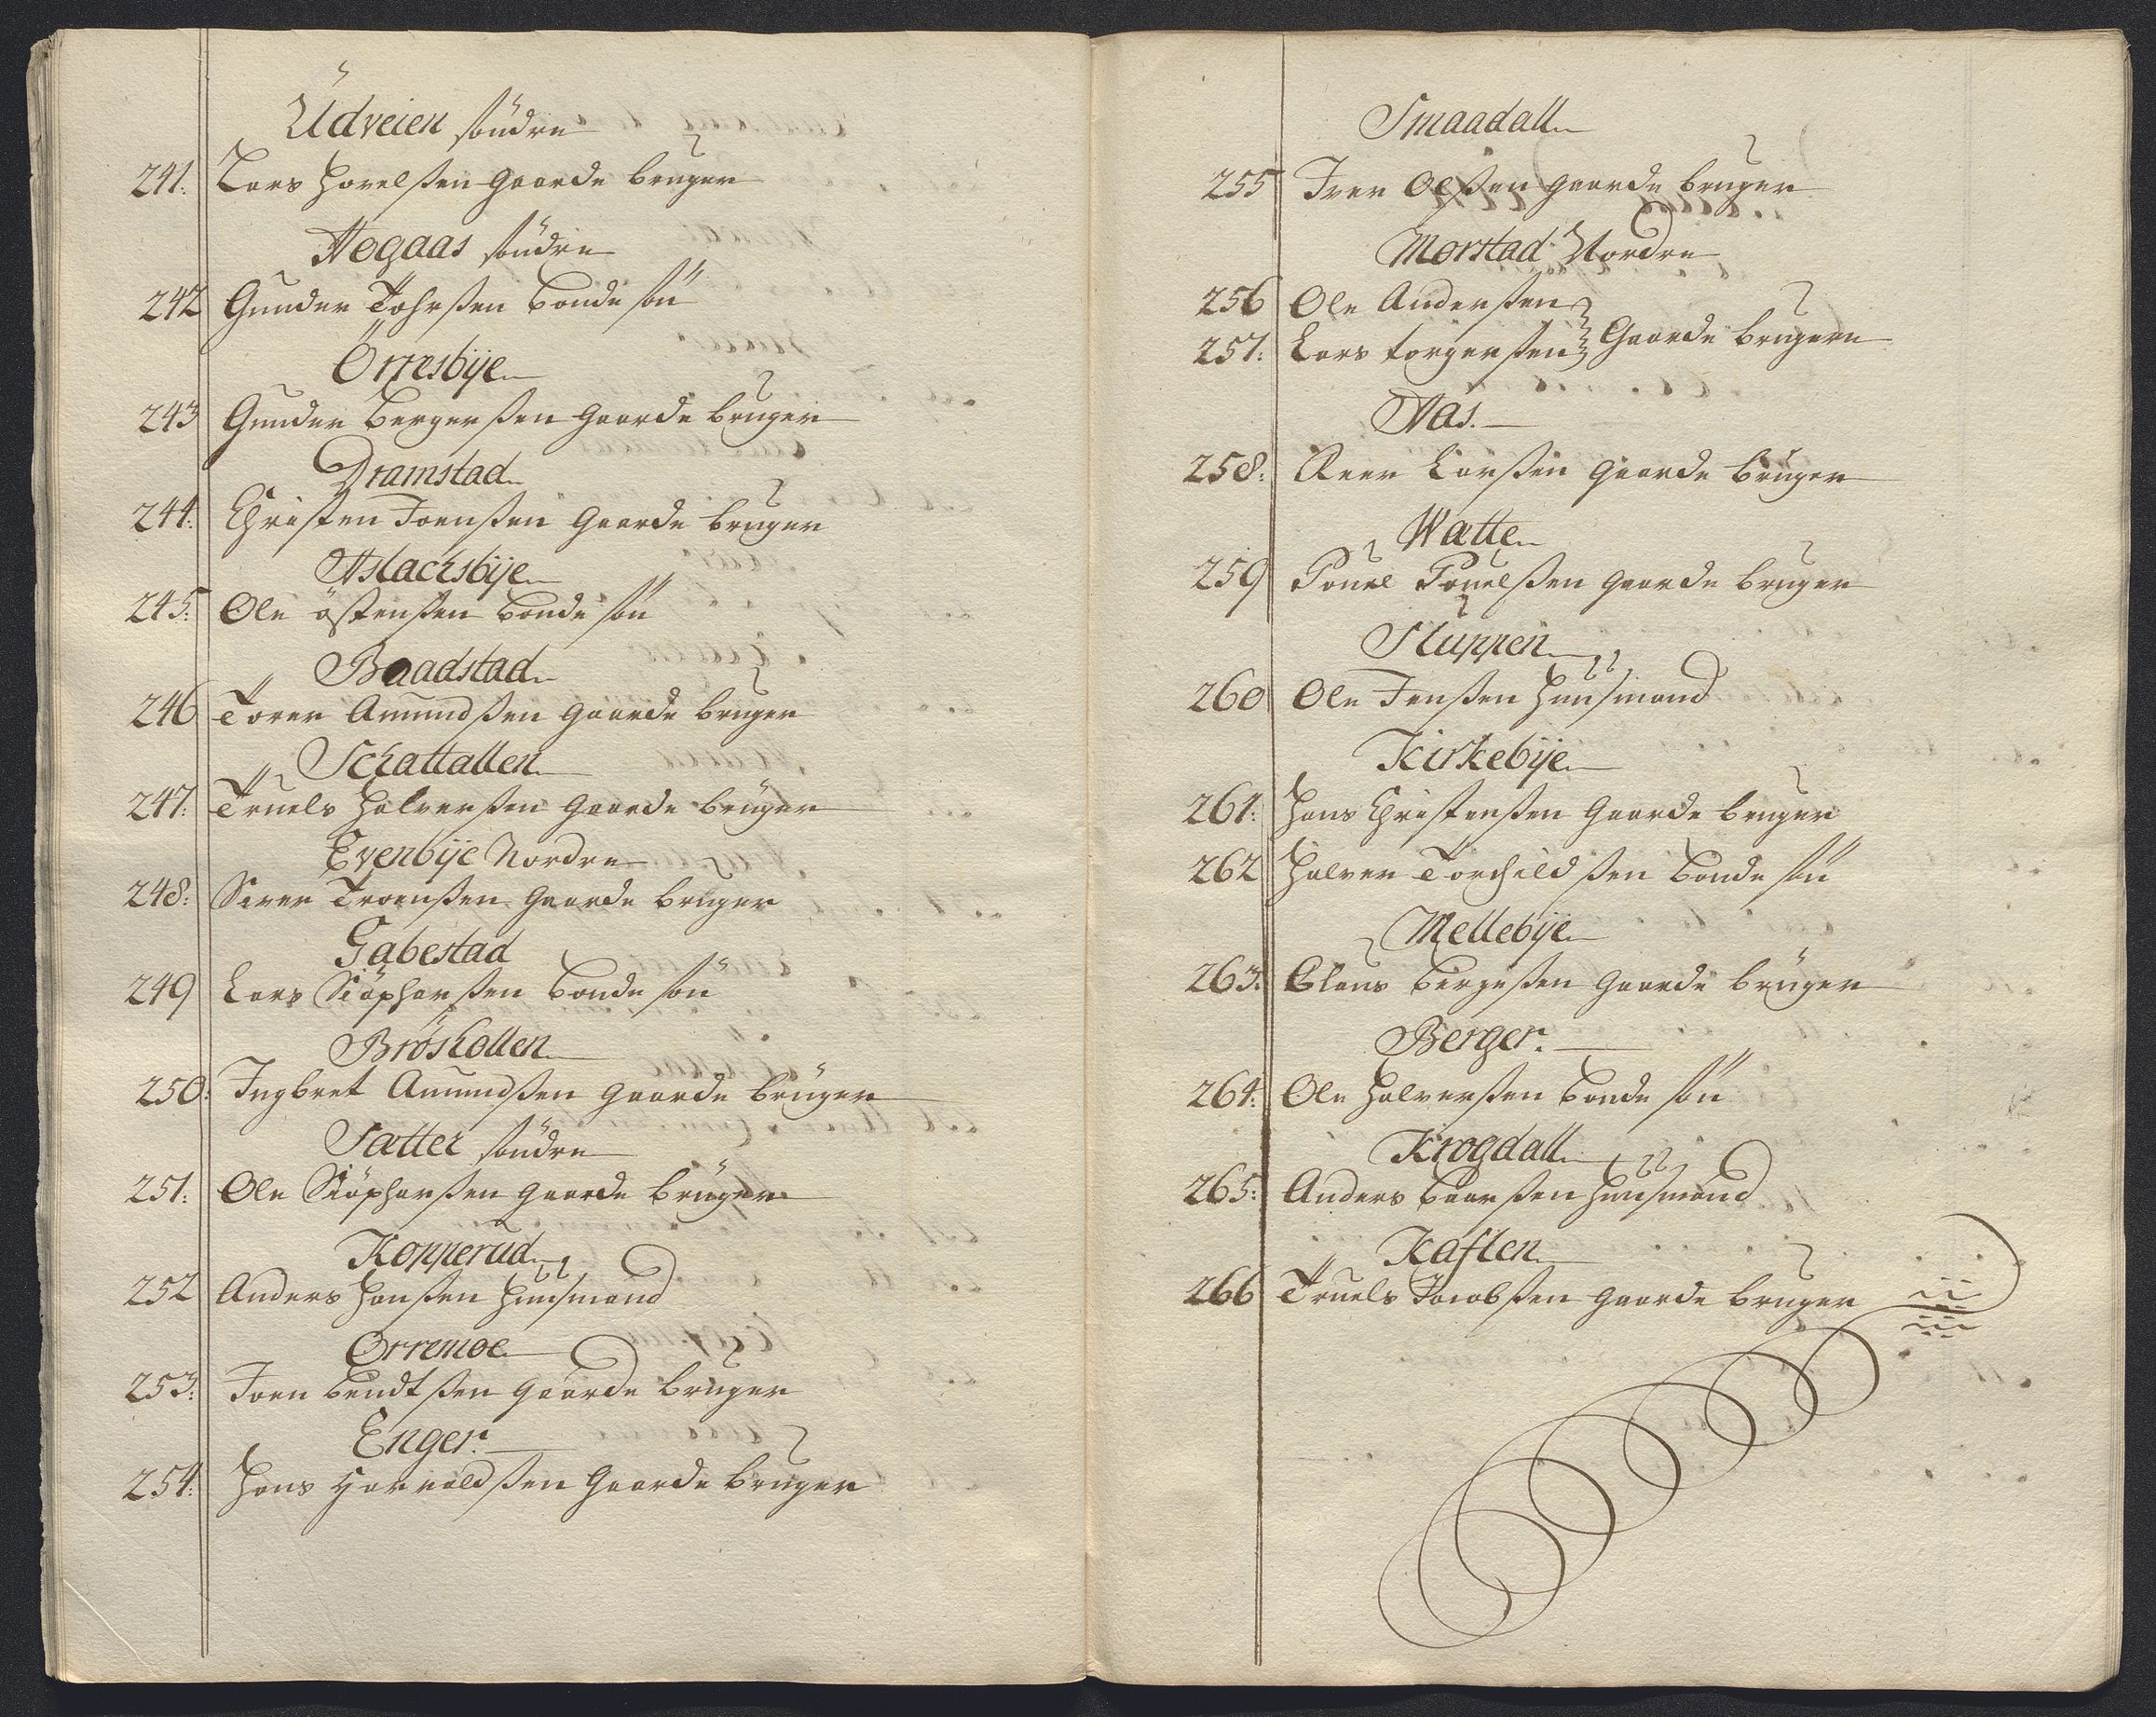 Udveien söndre
241: Lars Hovelßen gaarde bruger
Aogaas söndre
242 Gunder Tohrßen bonde sön
Örresbÿe
243 Gunder bergerßen gaarde bruger
Dramstad
244: Christen Joenßen gaarde bruger
Aslachsbÿe
245: Ole östenßen bonde sön
Baadstad
246 Torer Amundßen gaarde bruger
Schattallen
247: Truels Halverßen gaarde bruger
Evenbÿe Nordre
248: Siver Troenßen gaarde bruger
Gabestad
249 Lars Kiöpharßen bonde sön
Brøskollen
250: Ingbret Amundßen gaarde bruger
Sætter söndre
251: Ole Kiöpharßen gaarde bruger
Kopperud
252 Anders Hanßen Huusmand
Orremoe
253: Joen bendtßen gaarde bruger
Enger
254: Hans Harvaldßen gaarde bruger
Smaadall
255 Iver Olßen gaarde bruger
Morstad Nordre
256 Ole Anderßen
257: Lars torgerßen gaarde brugere
Aas.
258: Reer Larßen gaarde bruger
Watte
259 Pouel Pouelßen gaarde bruger
Sluppen
260 Ole Jenßen Huusmand
Kirkebÿe
261: Hans Christenßen gaarde bruger
262 Halver Torchildßen bonde sön
Mellebÿe
263: Claus bergeßen gaarde bruger
Berger.
264: Ole Halverßen bonde sön
Krogdall
265: Anders baarßen Huusmand
Kaflen
266 Truels Jacobßen gaarde bruger